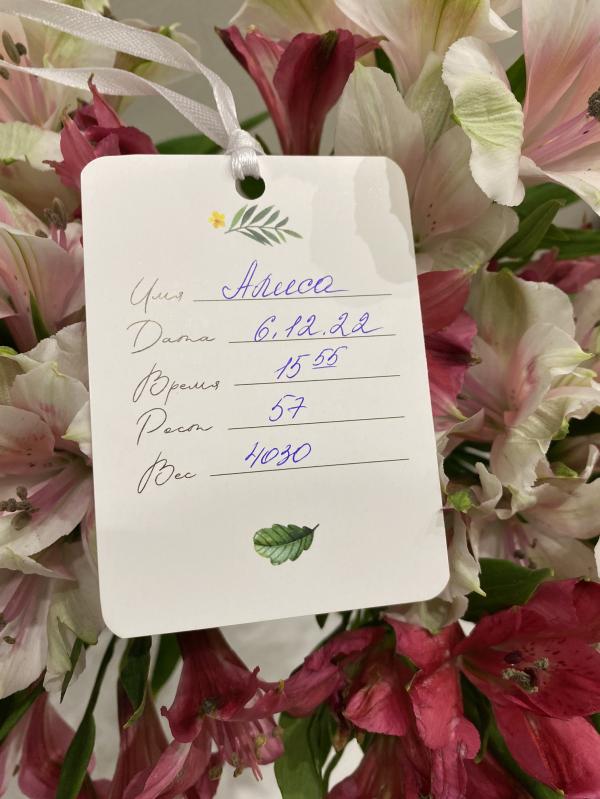 Имя Алиса
Дата 6.12.22
Время 15 55
Рост 57
Вес 4030